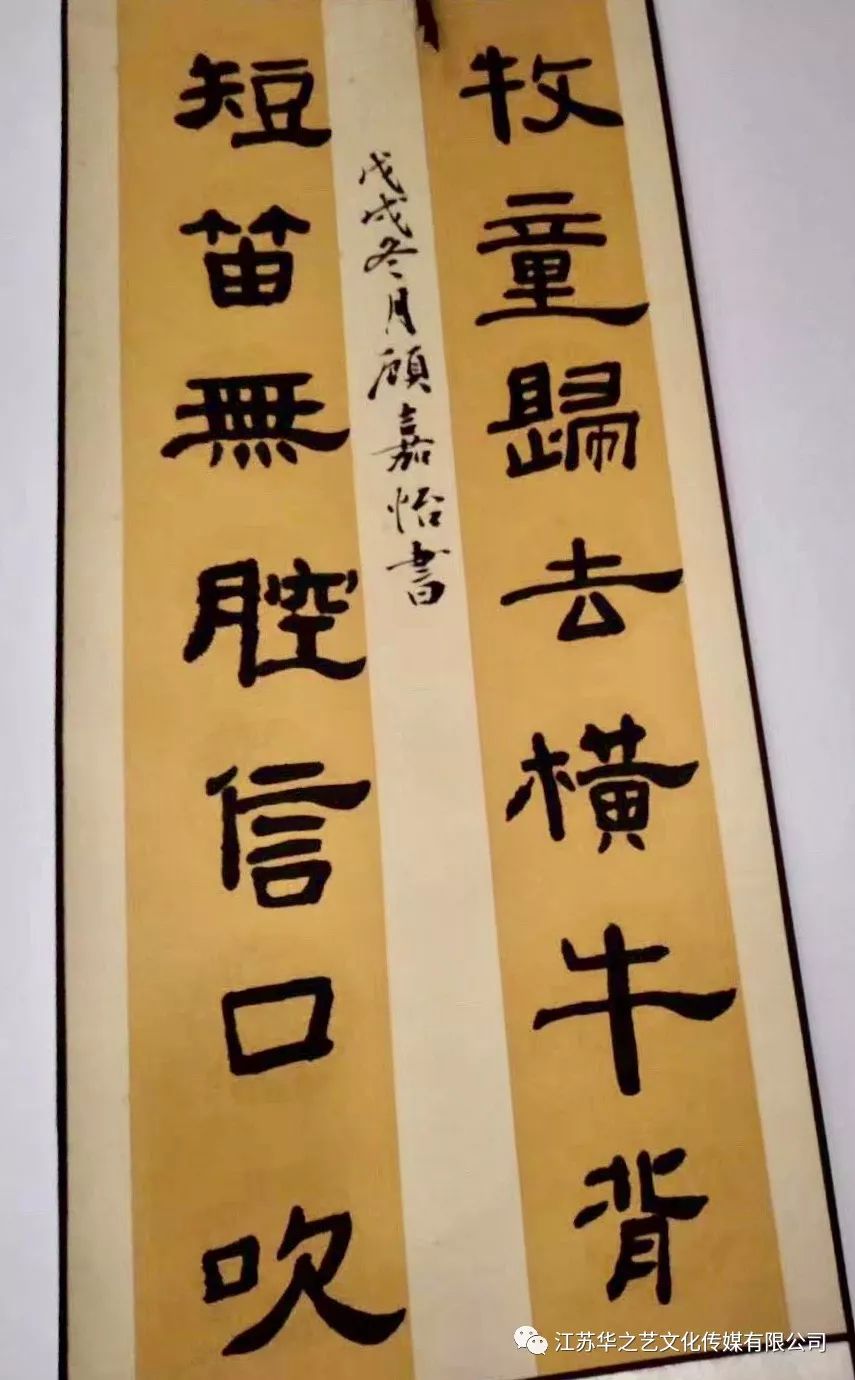 牧童歸去橫牛背
短笛無腔信口吹
戊戌冬月顧嘉怡書
江苏华之艺文化传媒有限公司